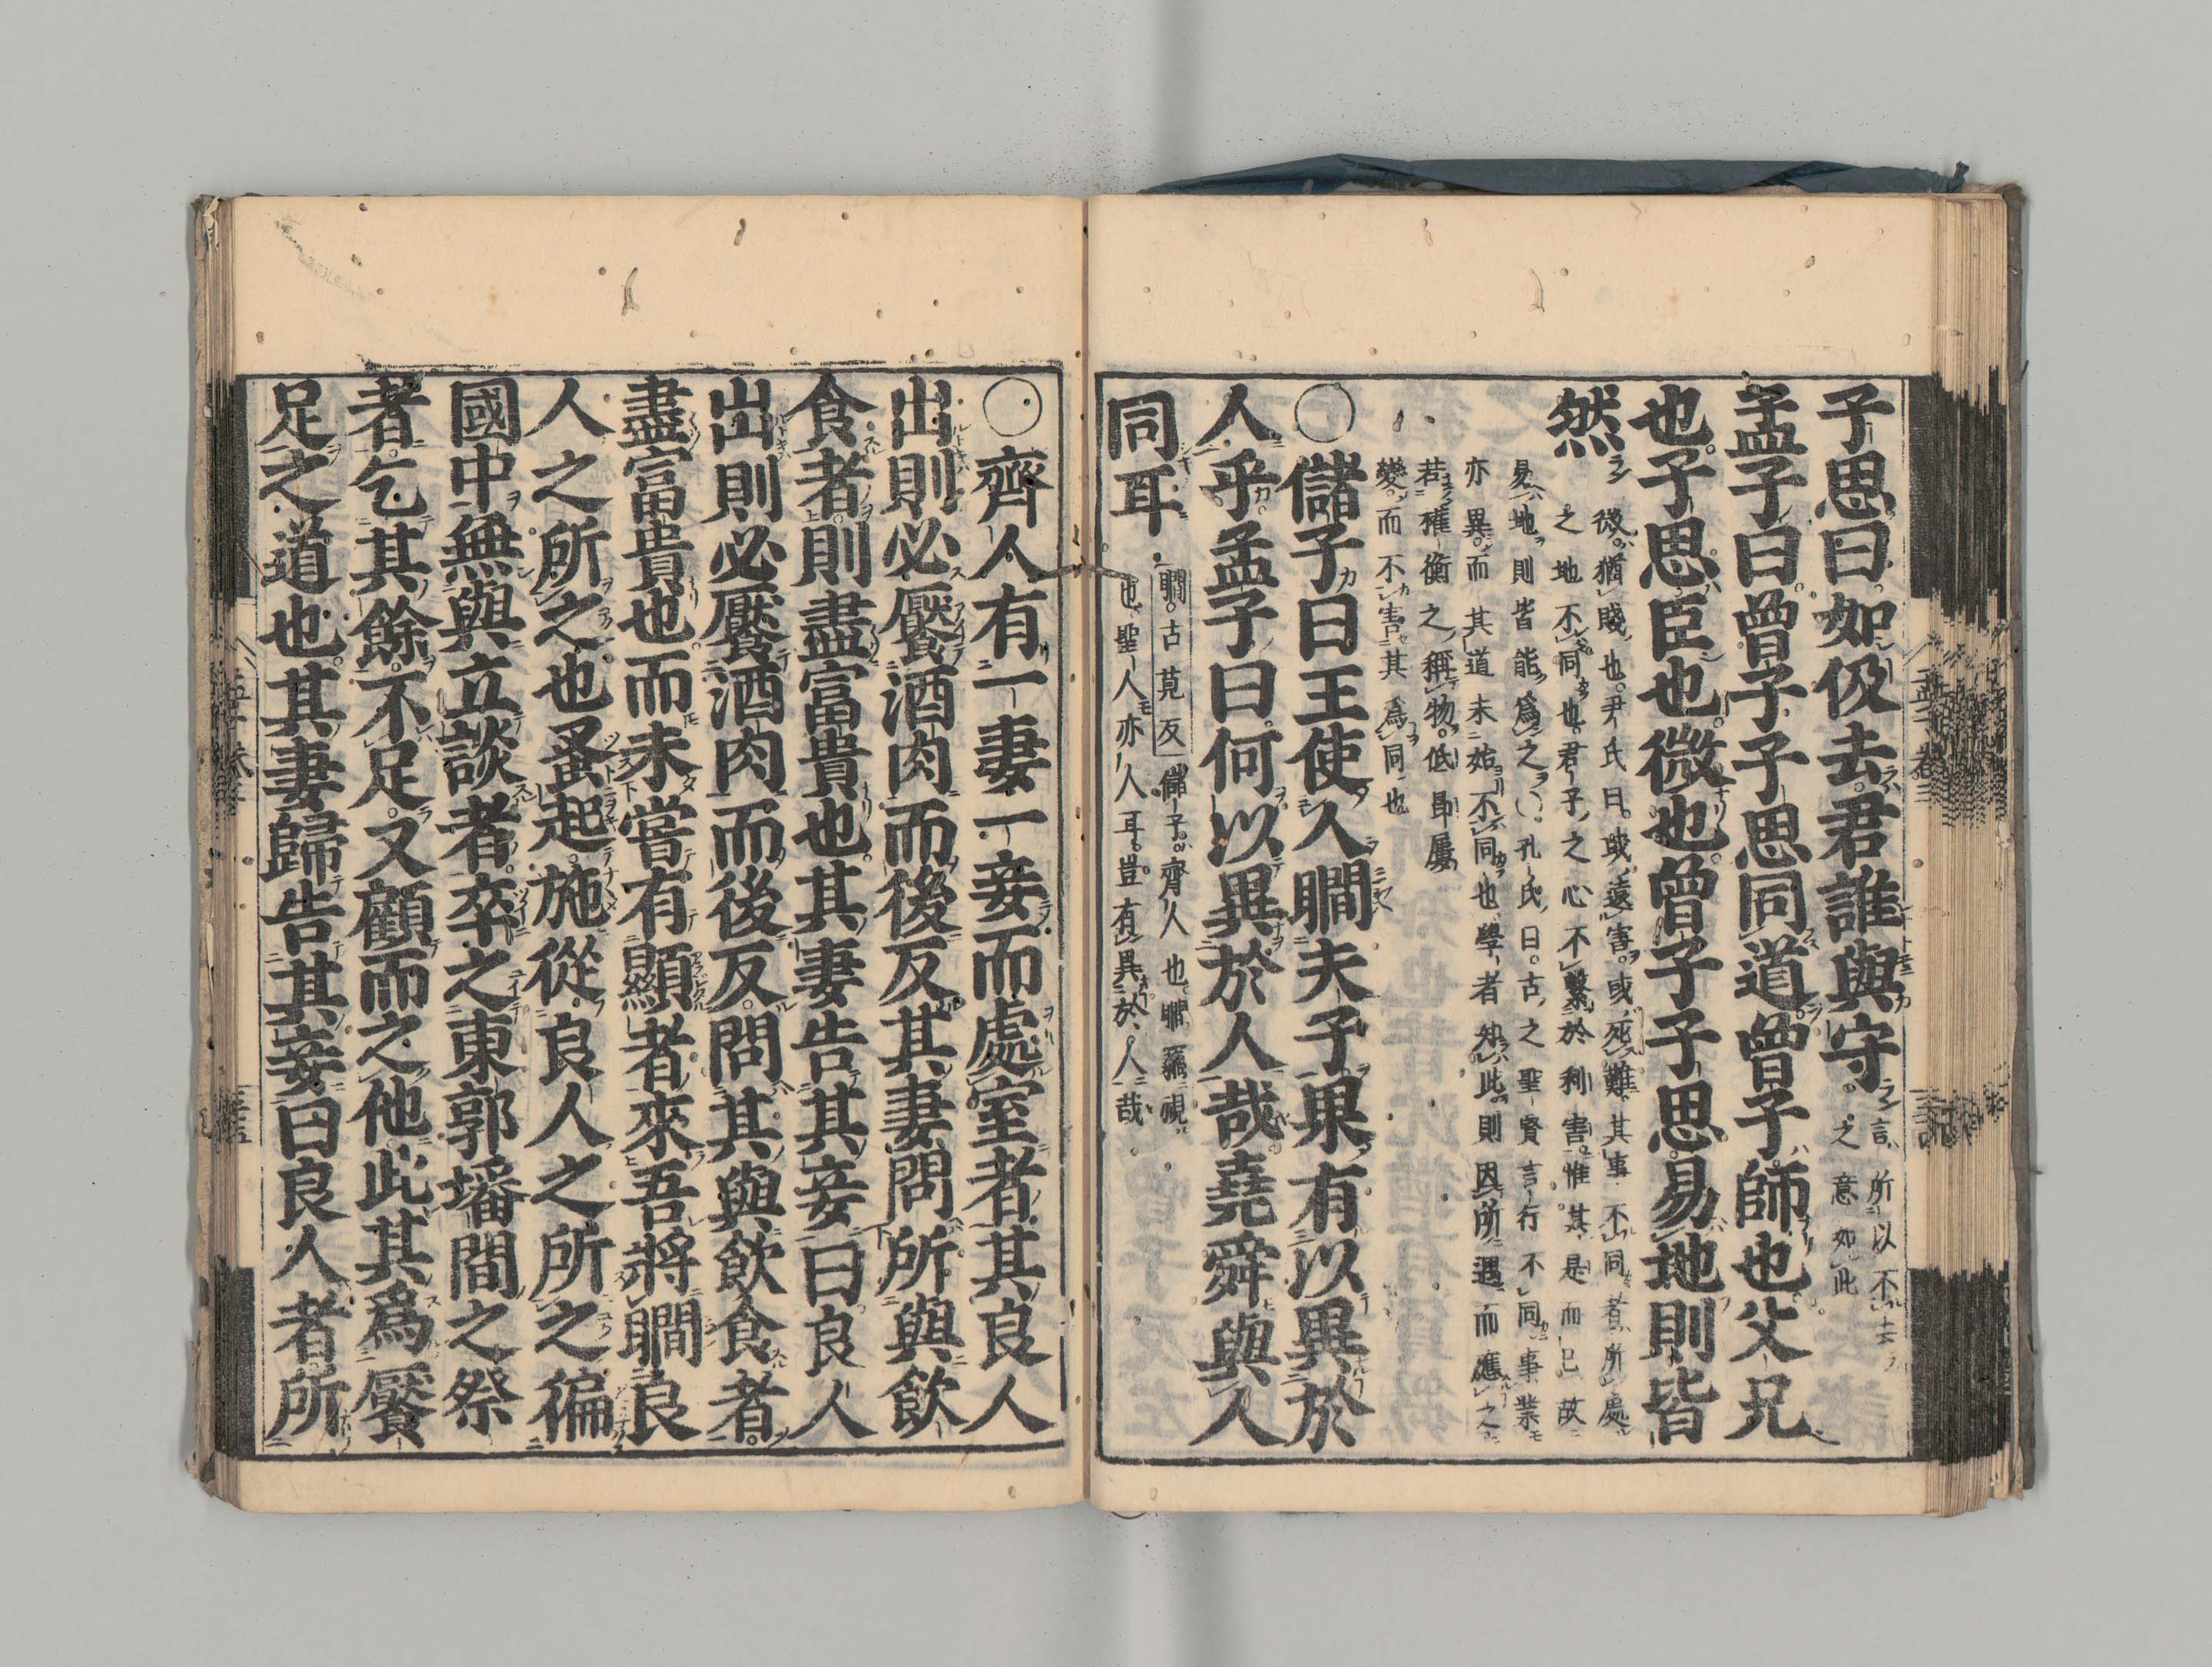 子思曰如伋去君誰與守 言所以不去
之意如此
孟子曰曾子子思同道曾子師也父兄
也子思臣也微也曾子子思易地則皆
然
微猶賤也尹氏曰或遠害或死難其事不同者所處
之地不同也君子之心不繫於利害惟其是而已故
易地則皆能爲之〇孔氏曰古之聖賢言行不同事業
亦異而其道未始不同也學者知此則因所遇而應之
若權衡之稱物低昻屢
變而不害其爲同也
〇儲子曰王使人瞷夫子果有以異於
人乎孟子曰何以異於人哉堯舜與人
同耳
瞷古莧反 儲子齊人也瞷竊視
也聖人亦人耳豈有異於人哉
〇齊人有一妻一妾而處室者其良人
出則必饜酒肉而後反其妻問所與飮
食者則盡富貴也其妻告其妾曰良人
出則必饜酒肉而後反問其與飮食者
盡富貴也而未嘗有顯者來吾將瞷良
人之所之也蚤起施從良人之所之徧
國中無與立談者卒之東郭墦間之祭
者乞其餘不足又顧而之他此其爲饜
足之道也其妻歸告其妾曰良人者所